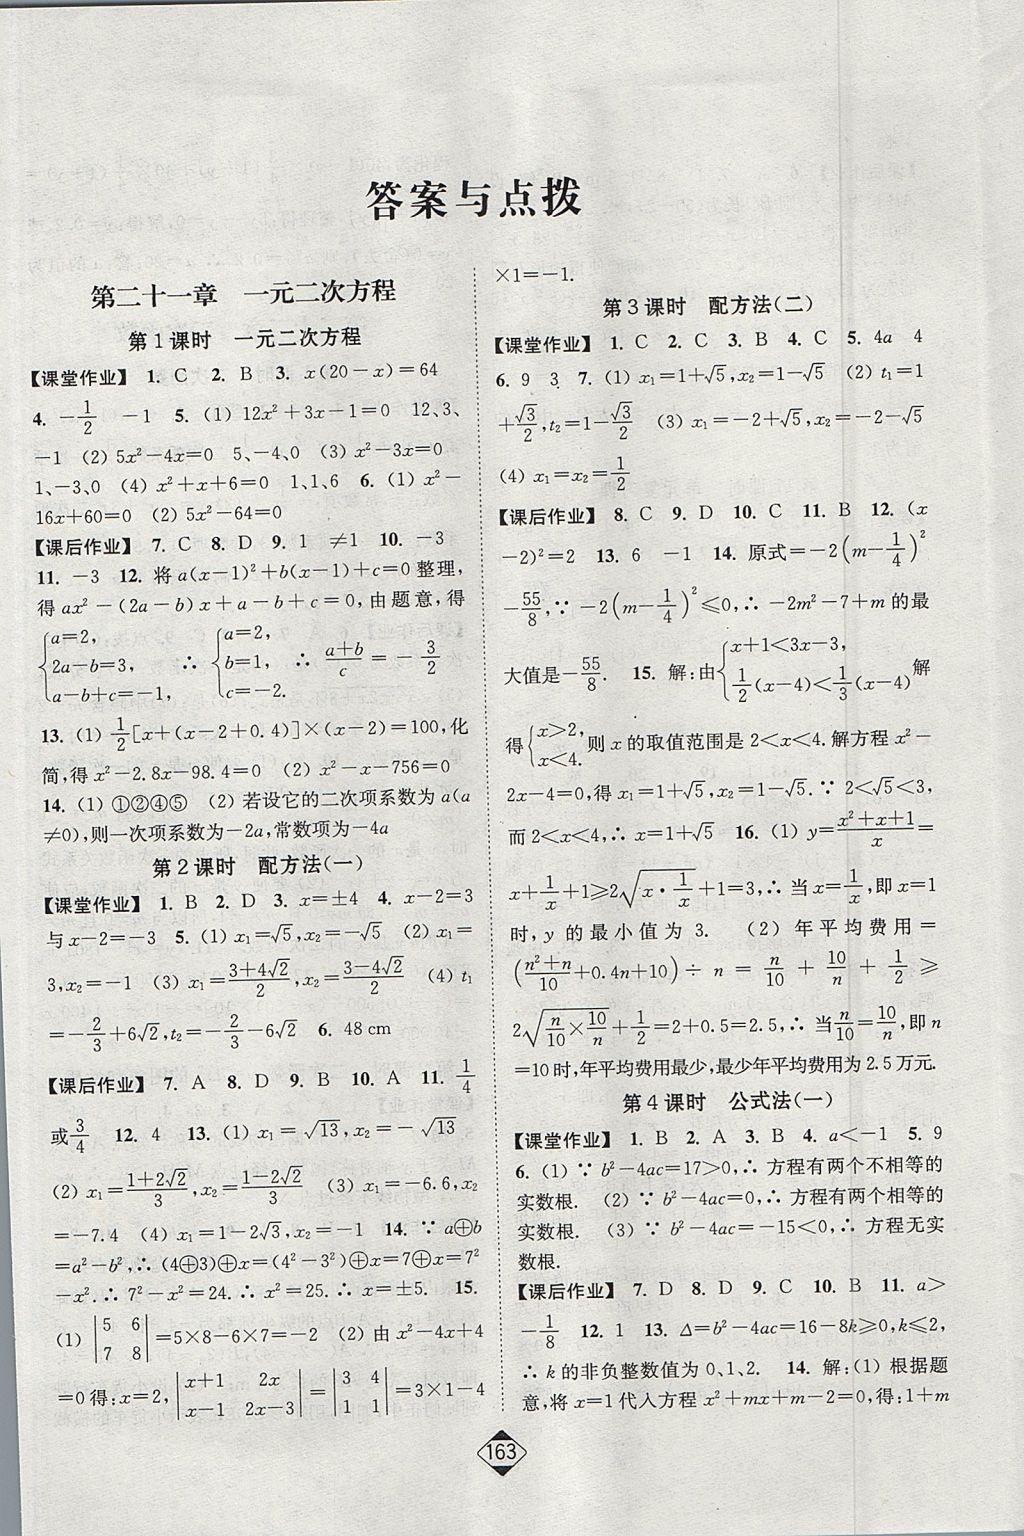 答案与点拨
第二十一章　一元二次方程
第1课时　一元二次方程
【课堂作业】 1. C 2. B 3. x(20-x)=64
4. -1/2 -1 5. (1) 12x²+3x-1=0 12、3、
-1 (2) 5x²-4x=0 5、-4、0 (3) x²-3x=0
1、-3、0 (4) x²+x+6=0 1、1、6 6. (1) x²-
16x+60=0 (2) 5x²-64=0
【课后作业】 7. C 8. D 9. 1 ≠1 10. -3
11. -3 12. 将 a(x-1)²+b(x-1)+c=0整理,
得 ax²-(2a-b)x+a-b+c=0,由题意,得
{a=2, 2a-b=3, a-b+c=-1, ∴ {a=2, b=1, c=-2. ∴ (a+b)/c=-3/2
13. (1) 1/2[x+(x-2+0.4)]×(x-2)=100,化
简,得 x²-2.8x-98.4=0 (2) x²-x-756=0
14. (1) ①②④⑤ (2) 若设它的二次项系数为 a(a
≠0),则一次项系数为-2a,常数项为-4a
第2课时　配方法(一)
【课堂作业】 1. B 2. D 3. x=±4 4. x-2=3
与 x-2=-3 5. (1) x₁=√5,x₂=-√5 (2) x₁=
3,x₂=-1 (3) x₁=(3+4√2)/2,x₂=(3-4√2)/2 (4) t₁
=-2/3+6√2,t₂=-2/3-6√2 6. 48 cm
【课后作业】 7. A 8. D 9. B 10. A 11. 1/4
或3/4 12. 4 13. (1) x₁=√13,x₂=-√13
(2) x₁=(1+2√2)/3,x₂=(1-2√2)/3 (3) x₁=-6.6,x₂
=-7.4 (4) x₁=1-2√3,x₂=-1 14. ∵ a⊕b
=a²-b²,∴ (4⊕3)⊕x=(4²-3²)⊕x=7⊕x=7²
-x². ∴ 7²-x²=24. ∴ x²=25. ∴ x=±5. 15.
(1) |5 6; 7 8|=5×8-6×7=-2 (2) 由 x²-4x+4
=0得:x=2, |x+1 2x; x-1 2x-3|=|3 4; 1 1|=3×1-4
×1=-1.
第3课时　配方法(二)
【课堂作业】 1. C 2. C 3. B 4. C 5. 4a 4
6. 9 3 7. (1) x₁=1+√5,x₂=1-√5 (2) t₁=1
+√3/2,t₂=1-√3/2 (3) x₁=-2+√5,x₂=-2-√5
(4) x₁=x₂=1/2
【课后作业】 8. C 9. D 10. C 11. B 12. (x
-2)²=2 13. 6 -1 14. 原式=-2(m-1/4)²
-55/8,∵ -2(m-1/4)²≤0,∴ -2m²-7+m 的最
大值是-55/8. 15. 解:由{x+1<3x-3, 1/2(x-4)<1/3(x-4) 解
得{x>2, x<4. 则 x 的取值范围是 2<x<4. 解方程 x²-
2x-4=0,得 x₁=1+√5,x₂=1-√5. ∵ 2<√5<3,
而 2<x<4,∴ x=1+√5 16. (1) y=(x²+x+1)/x=
x+1/x+1≥2√(x·1/x)+1=3,∴ 当 x=1/x,即 x=1
时,y 的最小值为 3. (2) 年平均费用=
((n²+n)/10+0.4n+10)÷n=n/10+10/n+1/2≥
2√(n/10×10/n)+1/2=2+0.5=2.5,∴ 当n/10=10/n,即 n
=10时,年平均费用最少,最少年平均费用为 2.5 万元.
第4课时　公式法(一)
【课堂作业】 1. B 2. A 3. B 4. a<-1 5. 9
6. (1) ∵ b²-4ac=17>0,∴ 方程有两个不相等的
实数根. (2) ∵ b²-4ac=0,∴ 方程有两个相等的
实数根. (3) ∵ b²-4ac=-15<0,∴ 方程无实
数根.
【课后作业】 7. D 8. D 9. C 10. B 11. a>
-1/8 12. 1 13. Δ=b²-4ac=16-8k≥0,k≤2,
∴ k 的非负整数值为 0、1、2. 14. 解:(1) 根据题
意,将 x=1 代入方程 x²+mx+m-2=0,得:1+m
163